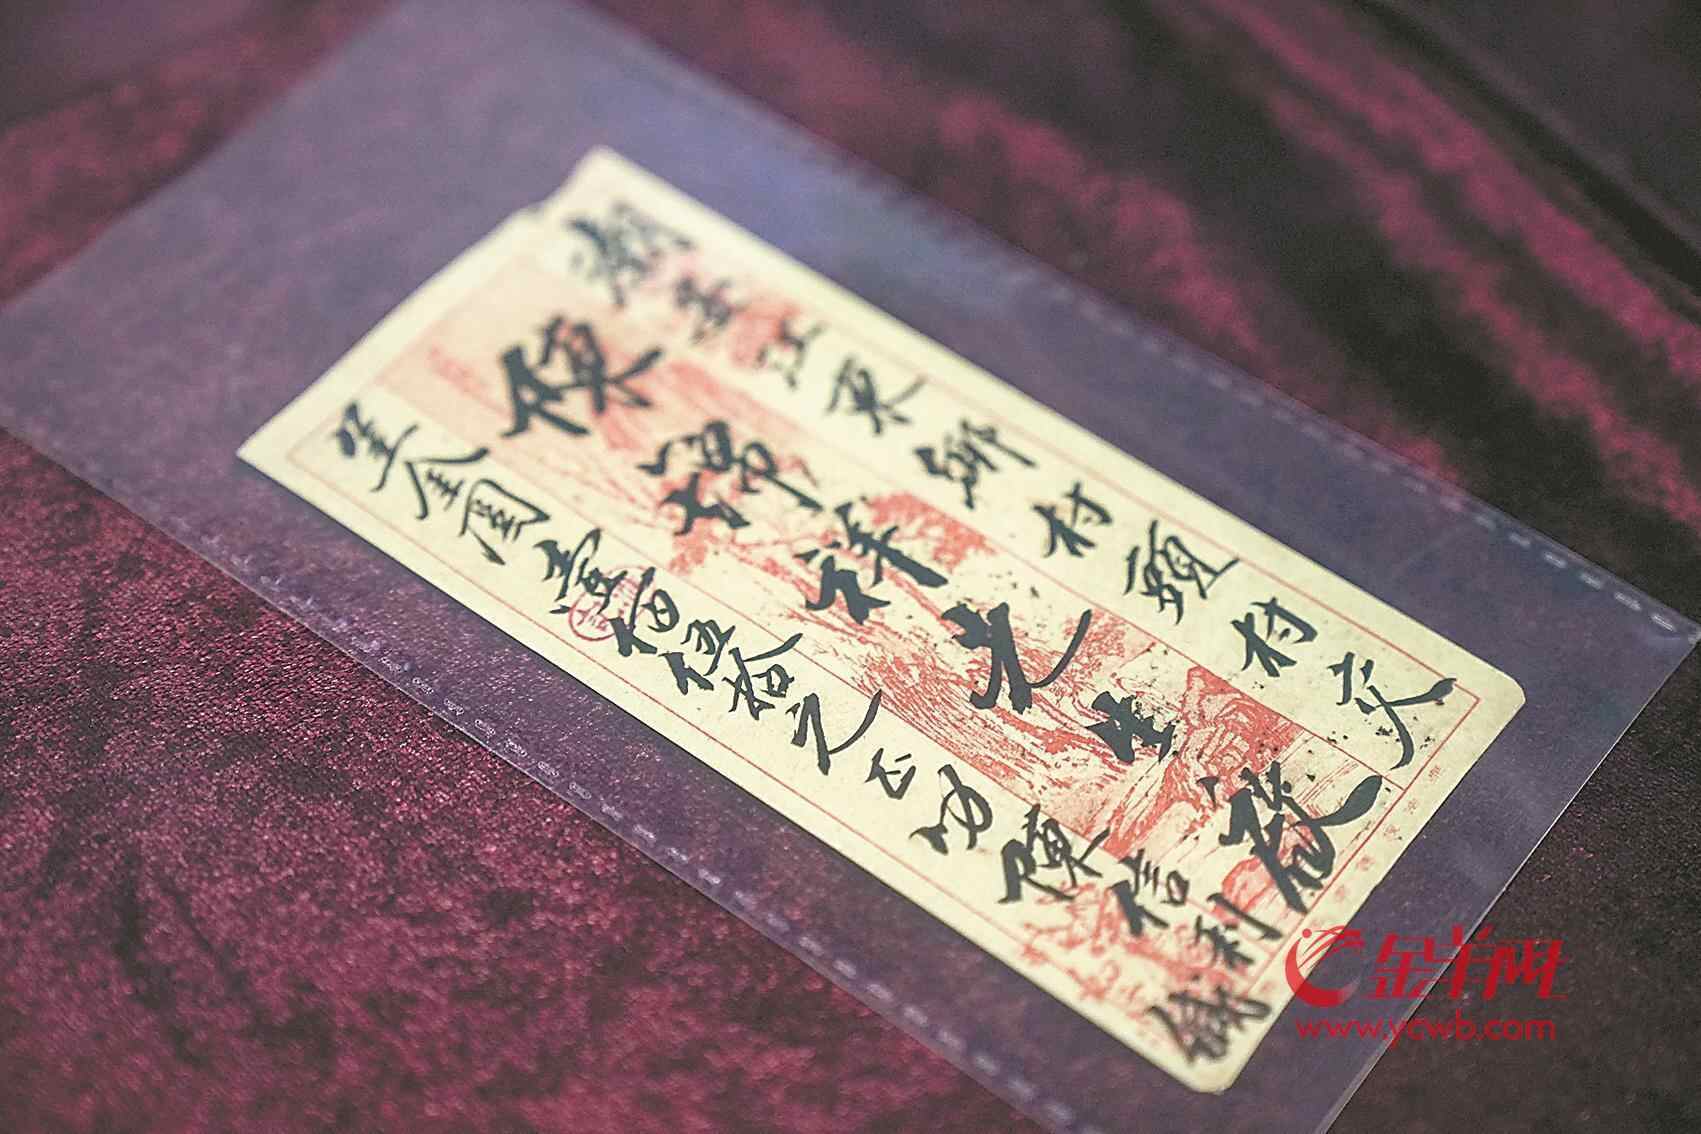 潮安江東鄉村頭村交
陳錦祥先生啟
坐金圓壹佰伍拾之正叻陳信利緘
金羊网
www.ycwb.com